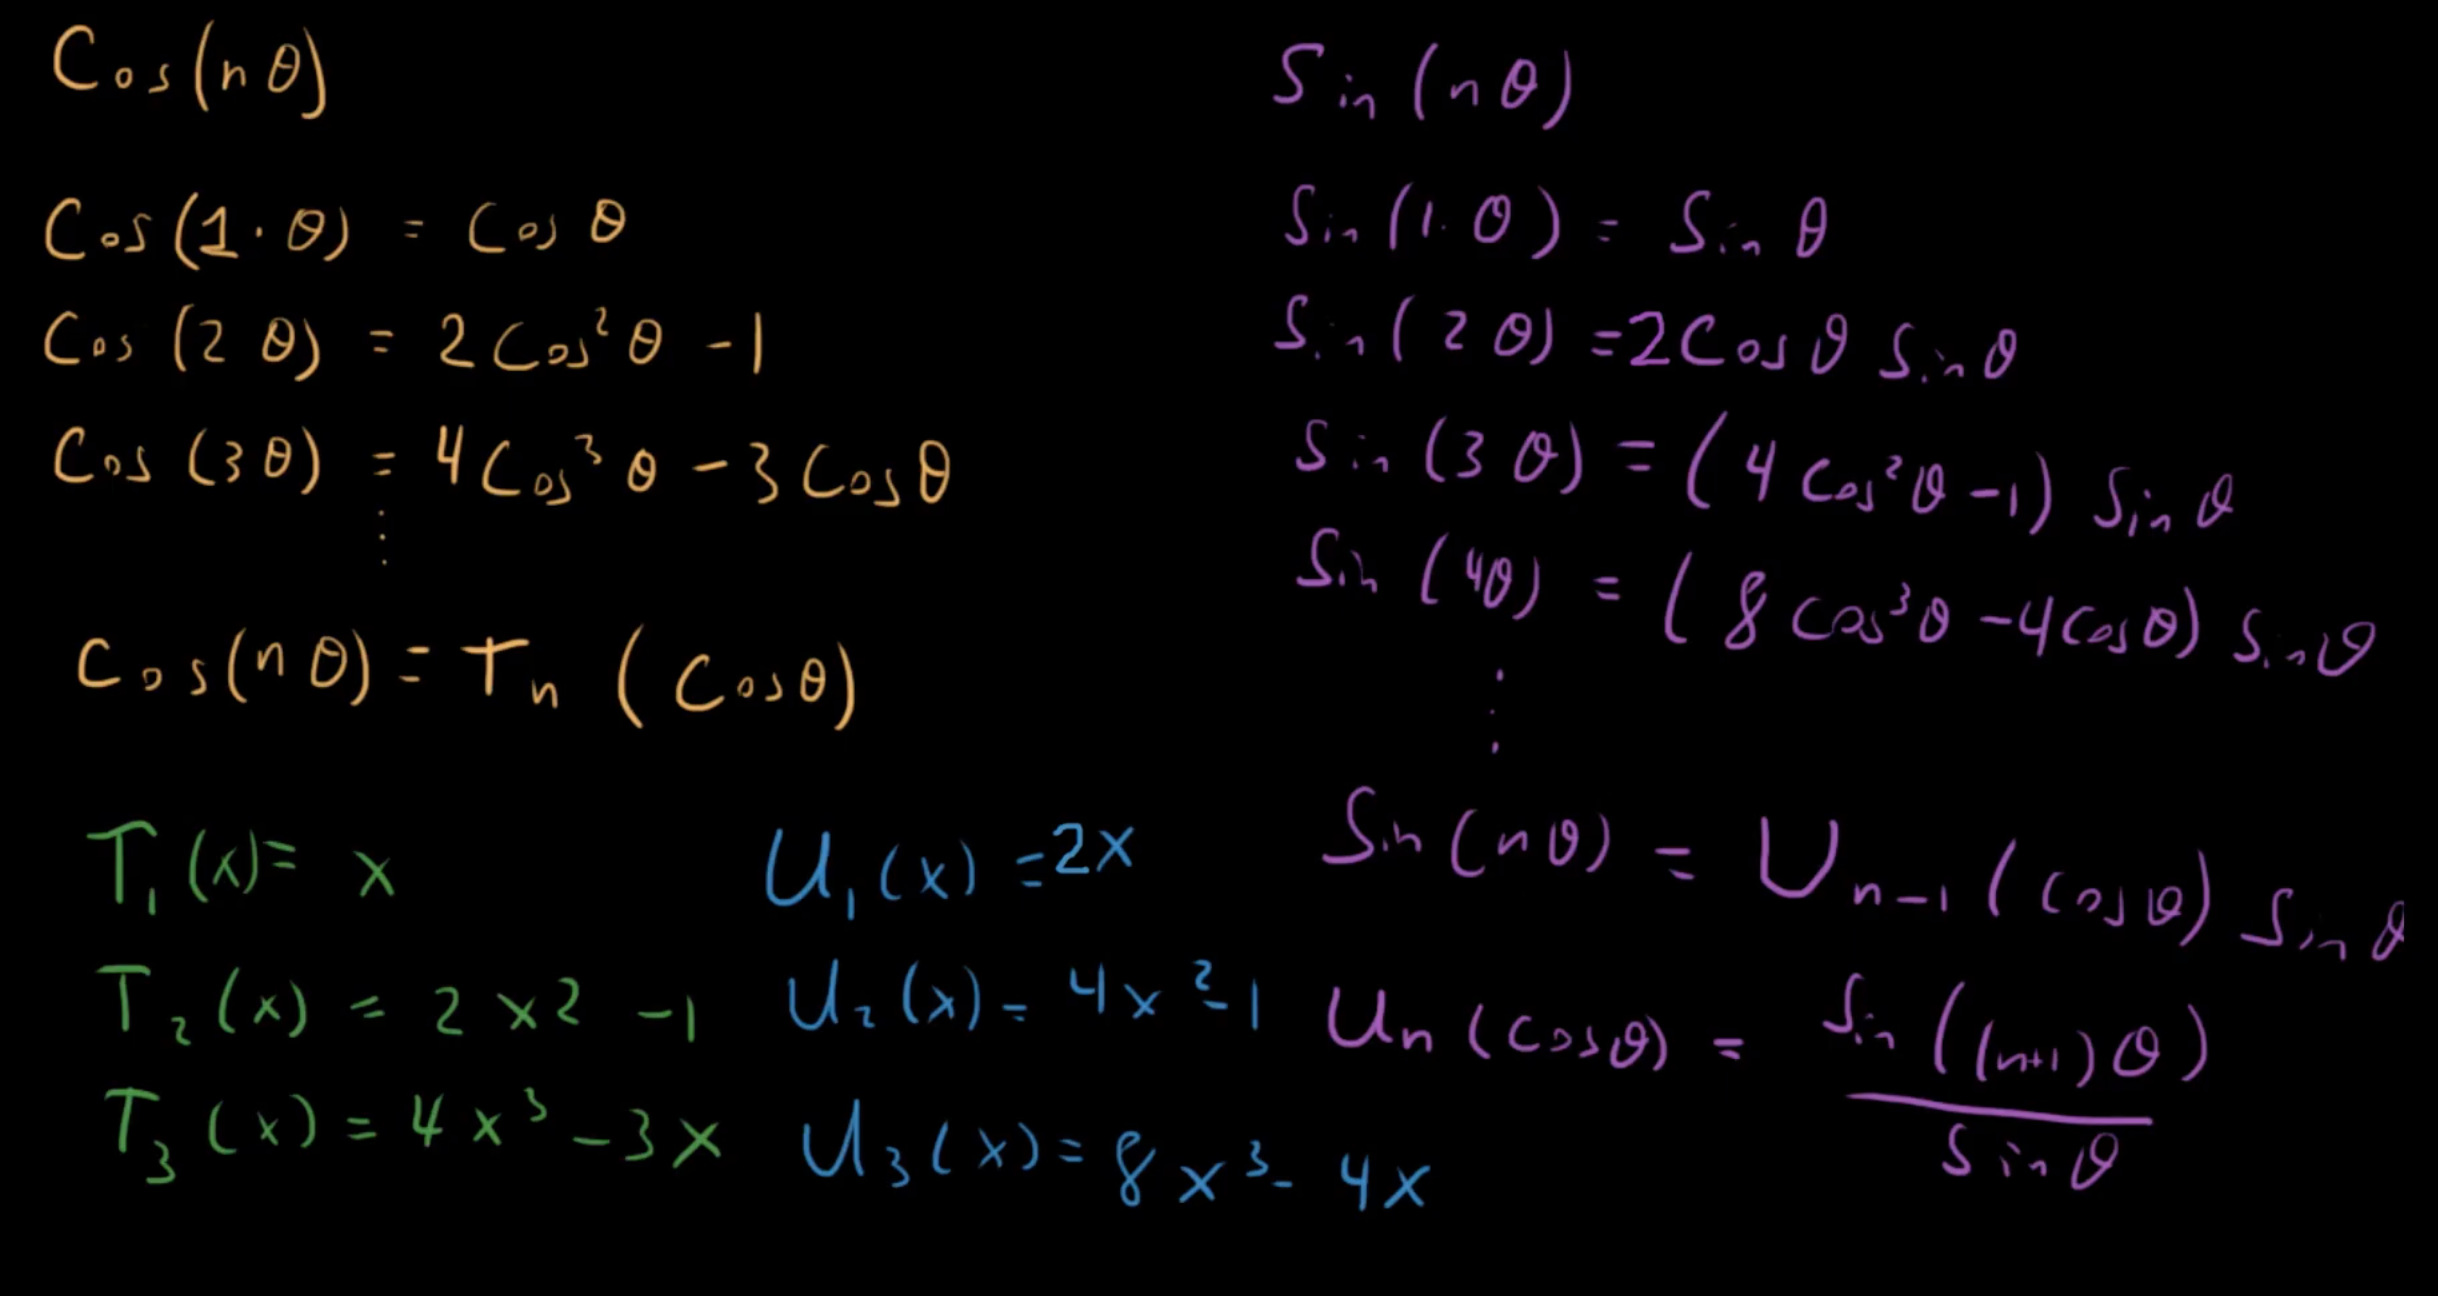 Cos(nθ)
Cos(1·θ) = Cos θ
Cos(2θ) = 2Cos²θ - 1
Cos(3θ) = 4Cos³θ - 3Cosθ
⋮
Cos(nθ) = Tₙ(Cosθ)
T₁(x) = x
T₂(x) = 2x2 - 1
T₃(x) = 4x³ - 3x
U₁(x) = 2x
U₂(x) = 4x² - 1
U₃(x) = 8x³ - 4x
Sin(nθ)
Sin(1·θ) = Sin θ
Sin(2θ) = 2Cosθ Sinθ
Sin(3θ) = (4Cos²θ - 1) Sinθ
Sin(4θ) = (8Cos³θ - 4Cosθ) Sinθ
⋮
Sin(nθ) = Uₙ₋₁(Cosθ) Sinθ
Uₙ(Cosθ) = Sin((n+1)θ) / Sinθ